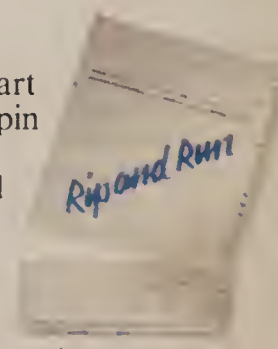 art
pin
Rip and Run